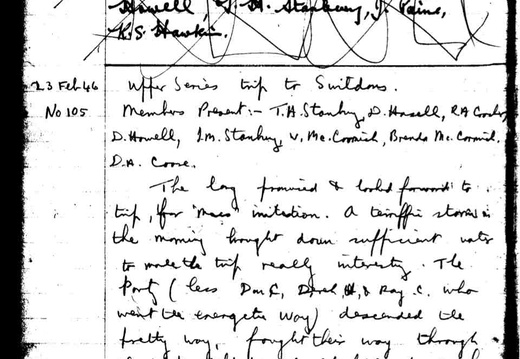 Howell, T. H. Stanbury, J. Paine,
K.S. Hawkin.
23 Feb 46 Upper Series trip to Swildons.
No 105 Members Present:- T.H. Stanbury, D. Hasell, RA Crocker,
D. Howell, I.M. Stanbury, V. McCormick, Brenda McCormick.
D.A. Coase.
The long promised & looked forward to
trip, for "mass" initiation. A terrific storm in
the morning brought down sufficient water
to make the trip really interesting. The
Party (less Don C, Derek H, & Ray C. who
went the energetic way) descended the
pretty way, fought their way through